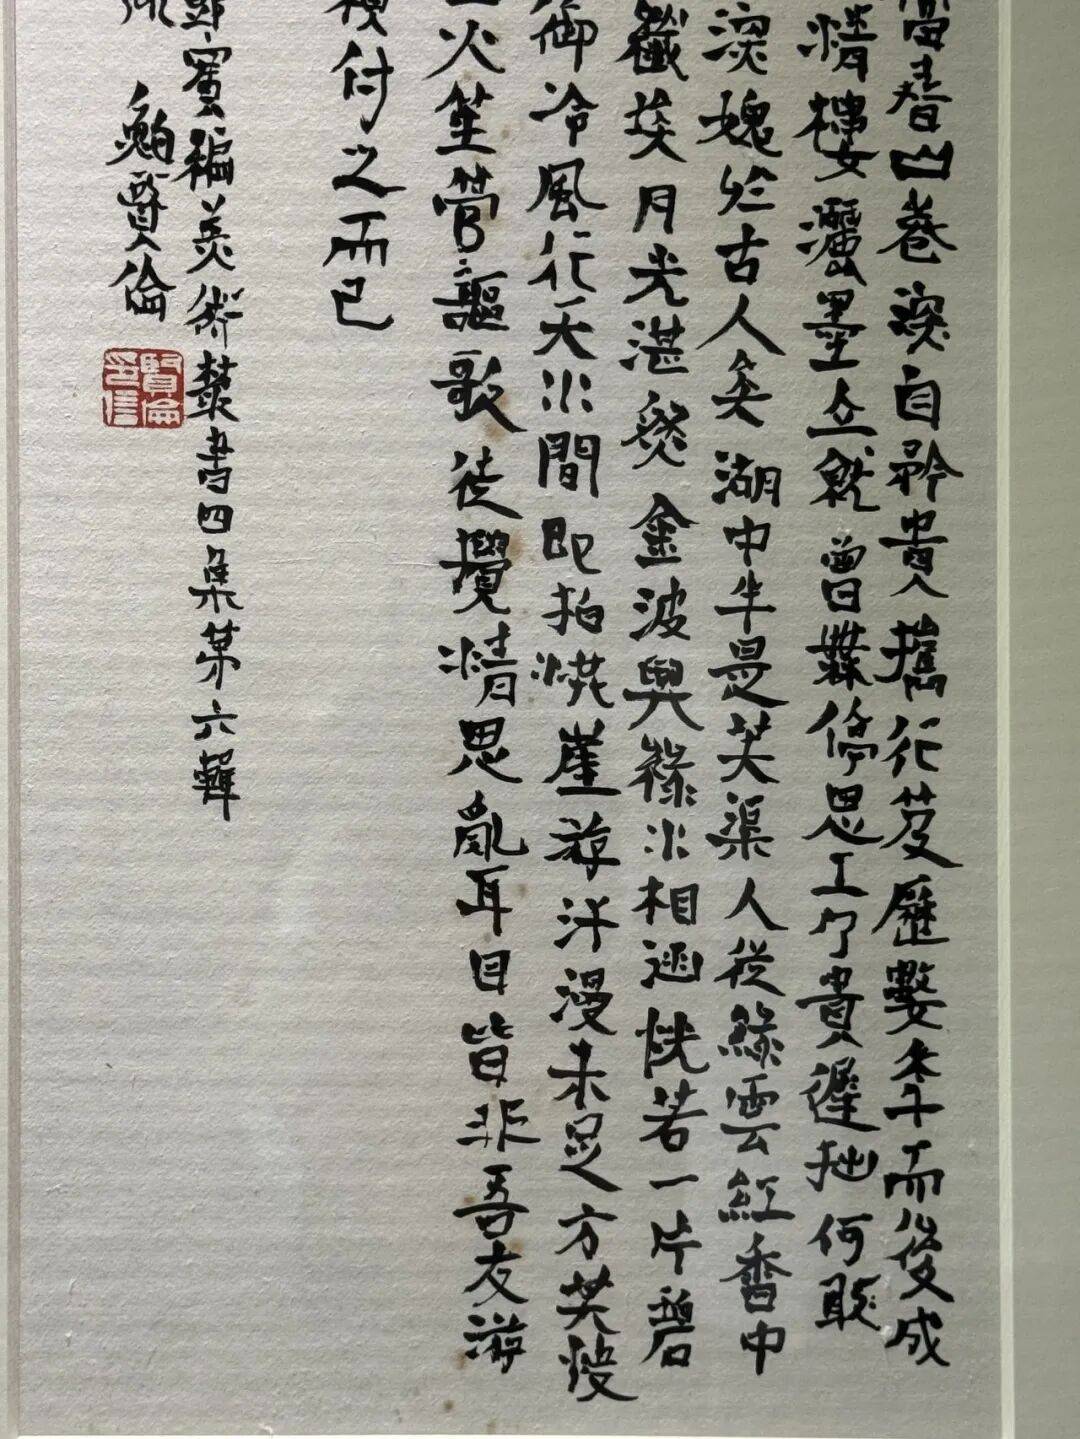 富春山卷深自矜貴携行笈歷數年而後成
情樓灑墨立就曾無停思工了貴遲拙何敢
深媿於古人矣湖中半是芙渠人從綠雲紅香中
纖埃月光湛然金波與綠水相涵恍若一片碧
御冷風行天水間即拍洪崖游汗漫未足方其快
火笙管謳歌徒攪情思亂耳目皆非吾友游
付之而已
賓編美術叢書四集第六輯
賢倫
賢倫印信